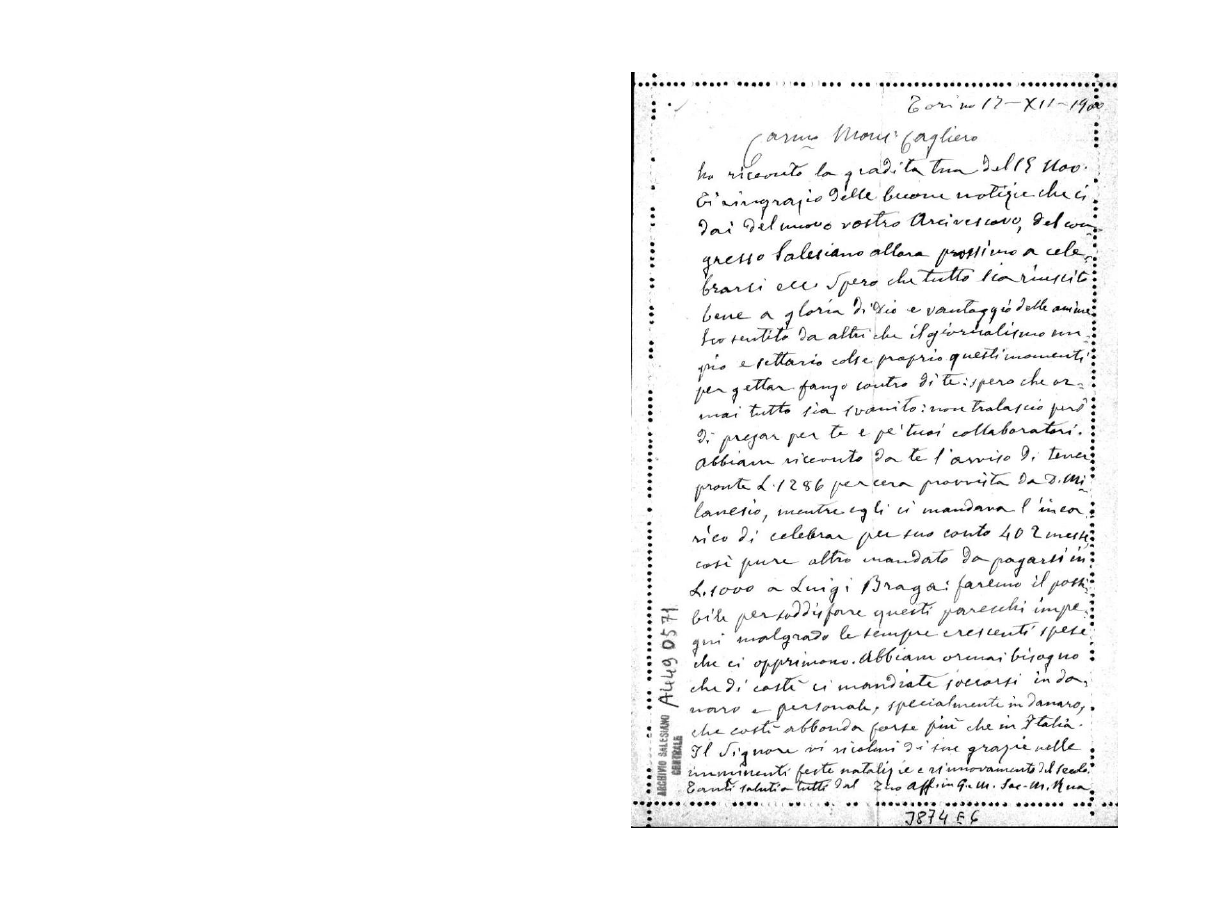 Torino 17-XII-1900
Carmo Monsr Cagliero
ho ricevuto la gradita tua del 15 Nov.
Ti ringrazio delle buone notizie che ci
dai del nuovo vostro Arcivescovo, del con-
gresso Salesiano allora prossimo a cele-
brarsi ecc. Spero che tutto sia riuscito
bene a gloria di Dio e vantaggio delle anime
Ho sentito da altri che il giornalismo em-
pio e settario colse proprio questi momenti
per gettar fango contro di te: spero che or-
mai tutto sia svanito: non tralascio però
di pregar per te e pe' tuoi collaboratori.
Abbiam ricevuto da te l'avviso di tener
pronte L. 1286 per cera provvista da D. Mi-
lanesio, mentre egli ci mandava l'inca-
rico di celebrar per suo conto 402 messe
così pure altro mandato da pagarsi in
L. 1000 a Luigi Braga: faremo il possi-
bile per soddisfare questi parecchi impe-
gni malgrado le sempre crescenti spese
che ci opprimono. Abbiam ormai bisogno
che di costì ci mandiate soccorsi in da-
naro e personale, specialmente in danaro,
che costì abbonda forse più che in Italia.
Il Signore vi ricolmi di sue grazie nelle
imminenti feste natalizie e rinnovamento del secolo.
Tanti saluti a tutti dal Tuo aff. in G. e M. Sac. M. Rua
ARCHIVIO SALESIANO
CENTRALE
A449 0571
J874 E6